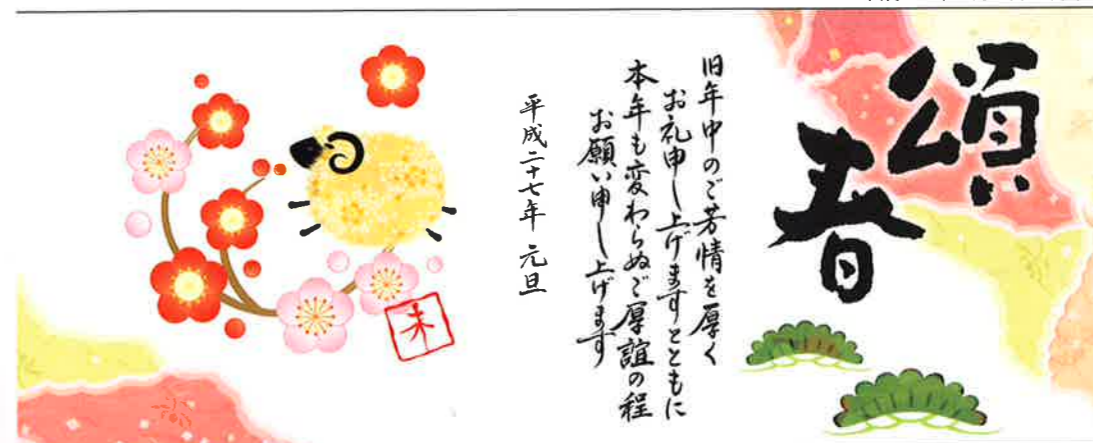 頌春
旧年中のご芳情を厚く
お礼申し上げますとともに
本年も変わらぬご厚誼の程
お願い申し上げます
平成二十七年 元旦
未